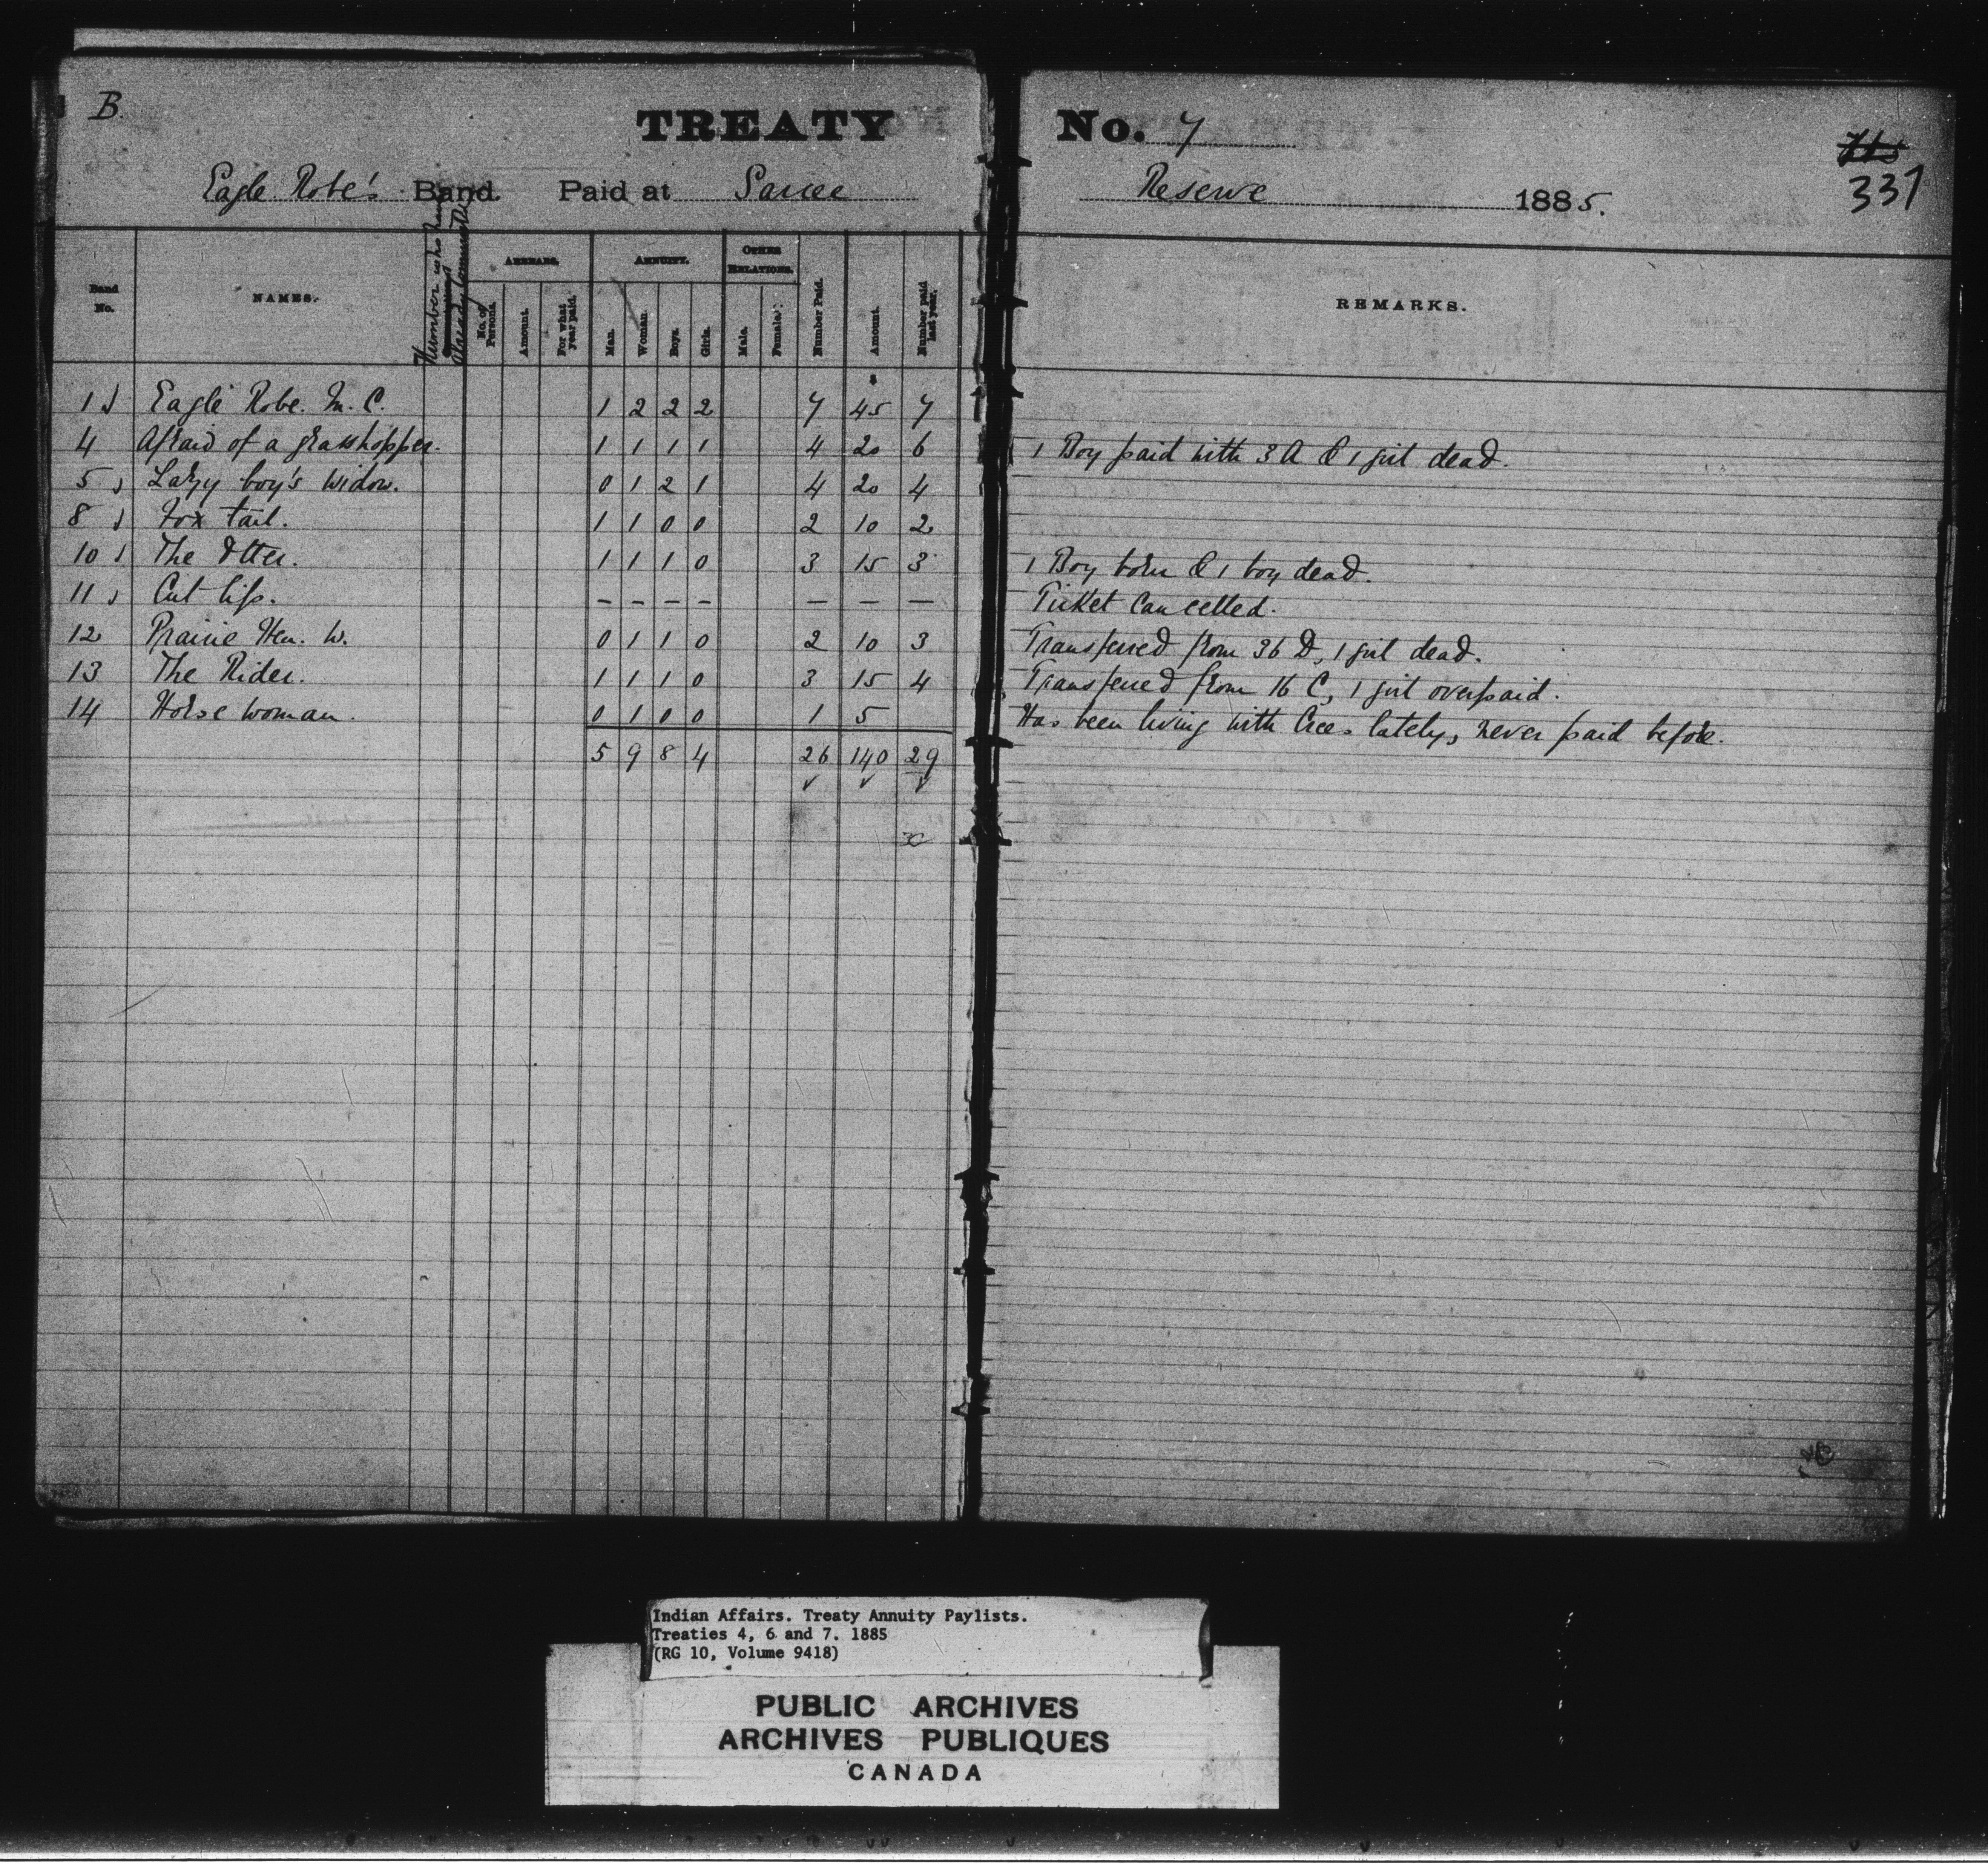 B.
TREATY No. 7
337
Eagle Robe's Band. Paid at Sarcee Reserve 1885.
Band No. NAMES. Number who have Already Commuted ARREARS. No. of Persons. Amount. For what year paid. ANNUITY. Man. Woman. Boys. Girls. OTHER RELATIONS. Male. Female. Number Paid. Amount. Number paid last year. REMARKS.
1 Eagle Robe. M. C. 1 2 2 2 7 45 7
4 Afraid of a grasshopper. 1 1 1 1 4 20 6 1 Boy paid with 3 A & 1 girl dead.
5 Lazy boy's widow. 0 1 2 1 4 20 4
8 Fox tail. 1 1 0 0 2 10 2
10 The Otter. 1 1 1 0 3 15 3 1 Boy born & 1 boy dead.
11 Cut lip. – – – – – – – Ticket Cancelled.
12 Prairie Hen. W. 0 1 1 0 2 10 3 Transferred from 36 D, 1 girl dead.
13 The Rider. 1 1 1 0 3 15 4 Transferred from 16 C, 1 girl overpaid.
14 Horse woman. 0 1 0 0 1 5 Has been living with Crees lately, never paid before.
5 9 8 4 26 140 29
Indian Affairs. Treaty Annuity Paylists.
Treaties 4, 6 and 7. 1885
(RG 10, Volume 9418)
PUBLIC ARCHIVES
ARCHIVES PUBLIQUES
CANADA